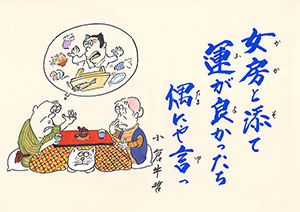 女房と添て
運が良かったち
偶にゃ言っ
小倉牛哲